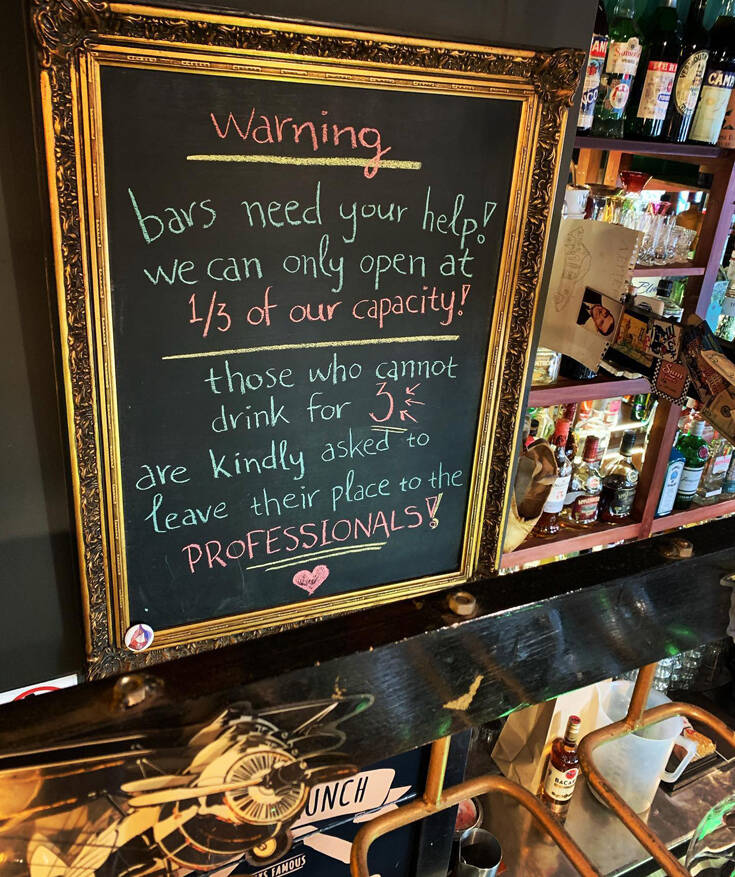 Warning
bars need your help!
we can only open at
1/3 of our capacity!
those who cannot
drink for 3
are kindly asked to
leave their place to the
PROFESSIONALS!
UNCH
FAMOUS